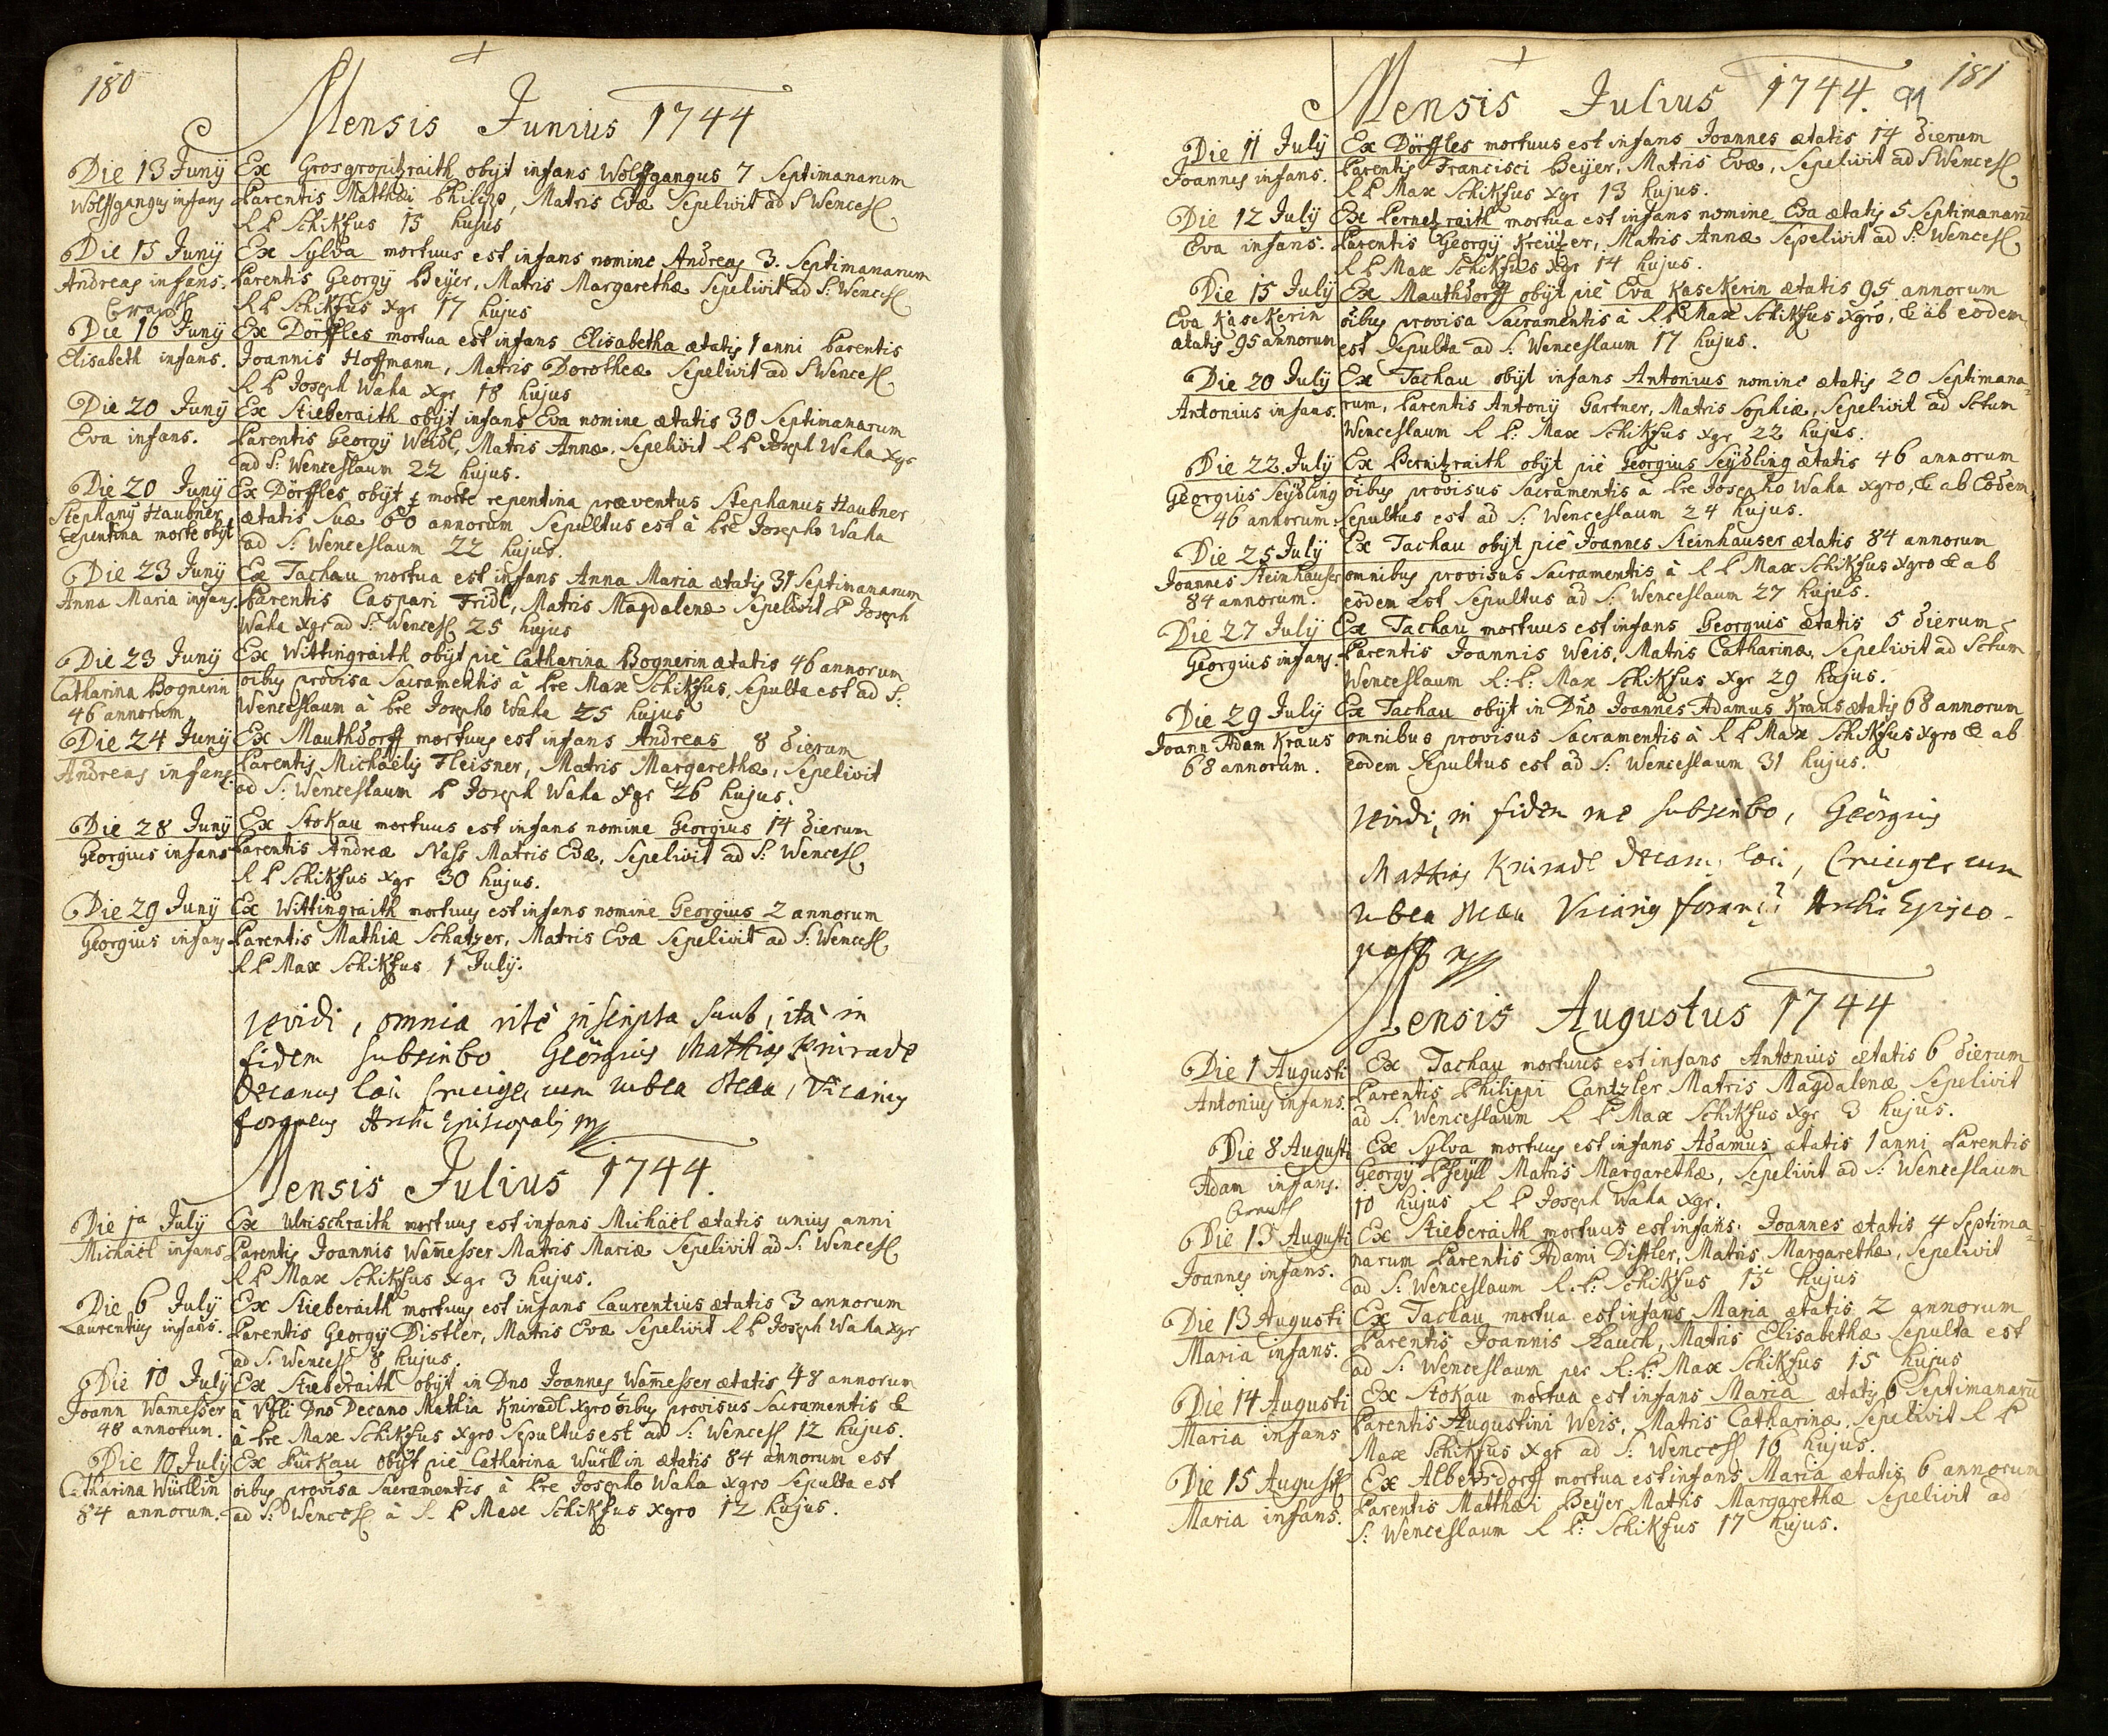 180
Mensis Junius 1744
Die 13 Junÿ
Wolffgangus infans
Ex Grosgropitzraith obÿt infans Wolffgangus 7 Septimanarum
Parentis Matthæi Philipp, Matris Evæ Sepelivit ad S Wencesl
R P Schikfus 15 hujus
Die 15 Junÿ
Andreas infans.
Ex Sylva mortuus est infans nomine Andreas 3. Septimanarum
Parentis Georgÿ Beÿer, Matris Margarethæ Sepelivit ad S: Wencesl
R P Schikfus Xgr 17 hujus
Die 16 Junÿ
Elisabeth infans.
Ex Dörffles mortua est infans Elisabetha ætatis 1 anni Parentis
Joannis Hoffmann, Matris Dorotheæ Sepelivit ad S Wencesl
R P Joseph Waha Xgr 18 hujus
Die 20 Junÿ
Eva infans.
Ex Stieberaith obÿt infans Eva nomine ætatis 30 Septimanarum
Parentis Georgÿ Weidl, Matris Annæ. Sepelivit R P Joseph Waha Xgr
ad S: Wenceslaum 22 hujus.
Die 20 Junÿ
Stephanus Haubner
repentina morte obÿt
Ex Dörffles obÿt morte repentina præventus Stephanus Haubner
ætatis suæ 60 annorum Sepultus est à Pre Josepho Waha
ad S: Wenceslaum 22 hujus.
Die 23 Junÿ
Anna Maria infans.
Ex Tachau mortua est infans Anna Maria ætatis 31 Septimanarum
Parentis Caspari Fridl, Matris Magdalenæ Sepelivit P Joseph
Waha Xgr ad S: Wencesl 25 hujus
Die 23 Junÿ
Catharina Bognerin
46 annorum
Ex Wittingraith obÿt piè Catharina Bognerin ætatis 46 annorum
oibus provisa Sacramentis à Pre Max Schikfus, Sepulta est ad S:
Wenceslaum à Pre Josepho Waha 25 hujus
Die 24 Junÿ
Andreas infans.
Ex Mauthdorff mortuus est infans Andreas 8 dierum
Parentis Michaëlis Fleisner, Matris Margarethæ, Sepelivit
ad S: Wenceslaum P Joseph Waha Xgr 26 hujus.
Die 28 Junÿ
Georgius infans
Ex Stokau mortuus est infans nomine Georgius 14 dierum
Parentis Andreæ Nass Matris Evæ, Sepelivit ad S: Wencesl
R P Schikfus Xgr 30 hujus.
Die 29 Junÿ
Georgius infans
Ex Wittingraith mortuus est infans nomine Georgius 2 annorum
Parentis Mathiæ Schatzer, Matris Evæ Sepelivit ad S: Wencesl
R P Max Schikfus 1 July.
Revidi, omnia ritè inscripta sunt, ità in
fidem subscribo Geörgius Mathias Kniradl
Decanus loci Cruciger cum rubea stella, Vicarius
foraneus Archi Episcopalis
Mensis Julius 1744.
Die 1a July
Michaël infans
Ex Ulrischraith mortuus est infans Michaël ætatis unius anni
Parentis Joannis Wam̄esser Matris Mariæ Sepelivit ad S: Wencesl
R P Max Schikfus Xgr 3 hujus.
Die 6 July
Laurentius infans.
Ex Stieberaith mortuus est infans Laurentius ætatis 3 annorum
Parentis Georgÿ Distler, Matris Evæ Sepelivit R P Joseph Waha Xgr
ad S. Wencesl 8 hujus.
Die 10 July
Joann Wamesser
48 annorum.
Ex Stieberaith obÿt in Dno Joannes Wam̄esser ætatis 48 annorum
à Dno Decano Mathia Kniradl Xgro oibus provisus Sacramentis &
à Pre Max Schikfus Xgro Sepultus est ad S: Wencesl 12 hujus.
Die 10 July
Catharina Würllin
84 annorum.
Ex Pürkau obÿt piè Catharina Würllin ætatis 84 annorum est
oibus provisa Sacramentis à Pre Josepho Waha Xgro Sepulta est
ad S: Wencesl à R P Max Schikfus Xgro 12 hujus.
181
91
Mensis Julius 1744.
Die 11 July
Joannes infans.
Ex Dörffles mortuus est infans Joannes ætatis 14 dierum
Parentis Francisci Beijer, Matris Evæ, Sepelivit ad S Wencesl
R P Max Schikfus Xgr 13 hujus.
Die 12 July
Eva infans.
Ex Pernetzraith mortua est infans nomine Eva ætatis 5 Septimanarū
Parentis Georgÿ Kreützer, Matris Annæ Sepelivit ad S: Wencesl
R P Max Schikfus Xgr 14 hujus.
Die 15 July
Eva Käsekerin
ætatis 95 annorum
Ex Mauthdorff obÿt piè Eva Kasekerin ætatis 95 annorum
oibus provisa Sacramentis à R P Max Schikfus Xgro, & ab eodem
est Sepulta ad S: Wenceslaum 17 hujus.
Die 20 July
Antonius infans.
Ex Tachau obÿt infans Antonius nomine ætatis 20 Septimana-
rum, Parentis Antonÿ Gartner, Matris Sophiæ, Sepelivit ad Sctum
Wenceslaum R P: Max Schikfus Xgr 22 hujus.
Die 22 July
Georgius Seÿdling
46 annorum.
Ex Bernitzraith obÿt piè Georgius Seÿdling ætatis 46 annorum
oibus provisus Sacramentis à Pre Josepho Waha Xgro, & ab Eodem
Sepultus est ad S: Wenceslaum 24 hujus.
Die 25 July
Joannes Steinhauser
84 annorum.
Ex Tachau obÿt piè Joannes Steinhauser ætatis 84 annorum
omnibus provisus Sacramentis à R P Max Schikfus Xgro & ab
eodem est Sepultus ad S: Wenceslaum 27 hujus.
Die 27 July
Georgius infans.
Ex Tachau mortuus est infans Georgius ætatis 5 dierum
Parentis Joannis Weis, Matris Catharinæ, Sepelivit ad Sctum
Wenceslaum R: P: Max Schikfus Xgr 29 hujus.
Die 29 July
Joann Adam Kraus
68 annorum.
Ex Tachau obÿt in Dno Joannes Adamus Kraus ætatis 68 annorum
omnibus provisus Sacramentis à R P Max Schikfus Xgro & ab
eodem Sepultus est ad S: Wenceslaum 31 hujus.
Revidi, in fidem me subscribo, Geörgius
Mathias Kniradl Decanus loci, Cruciger cum
rubea stella Vicarius foraneus Archi Episco-
palis
Mensis Augustus 1744
Die 1 Augusti
Antonius infans.
Ex Tachau mortuus est infans Antonius ætatis 6 dierum
Parentis Philippi Cantzler Matris Magdalenæ Sepelivit
ad S: Wenceslaum R P Max Schikfus Xgr 3 hujus.
Die 8 Augusti
Adam infans.
Ex Sylva mortuus est infans Adamus ætatis 1 anni Parentis
Georgÿ Matris Margarethæ, Sepelivit ad S: Wenceslaum
10 hujus R P Joseph Waha Xgr.
Die 13 Augusti
Joannes infans.
Ex Stieberaith mortuus est infans. Joannes ætatis 4 Septima-
narum Parentis Adami Distler, Matris Margarethæ, Sepelivit
ad S: Wenceslaum R. P: Schikfus 15 hujus
Die 13 Augusti
Maria infans.
Ex Tachau mortua est infans Maria ætatis 2 annorum
Parentis Joannis Rauch, Matris Elisabethæ Sepulta est
ad S: Wenceslaum per R: P: Max Schikfus 15 hujus
Die 14 Augusti
Maria infans
Ex Stokau mortua est infans Maria ætatis 6 Septimanarū
Parentis Augustini Weis, Matris Catharinæ. Sepelivit R P
Max Schikfus Xgr ad S: Wencesl 16 hujus.
Die 15 Augusti
Maria infans.
Ex Albersdorff mortua est infans Maria ætatis 6 annorum
Parentis Matthæi Beÿer Matris Margarethæ Sepelivit ad
S: Wenceslaum R P: Schikfus 17 hujus.